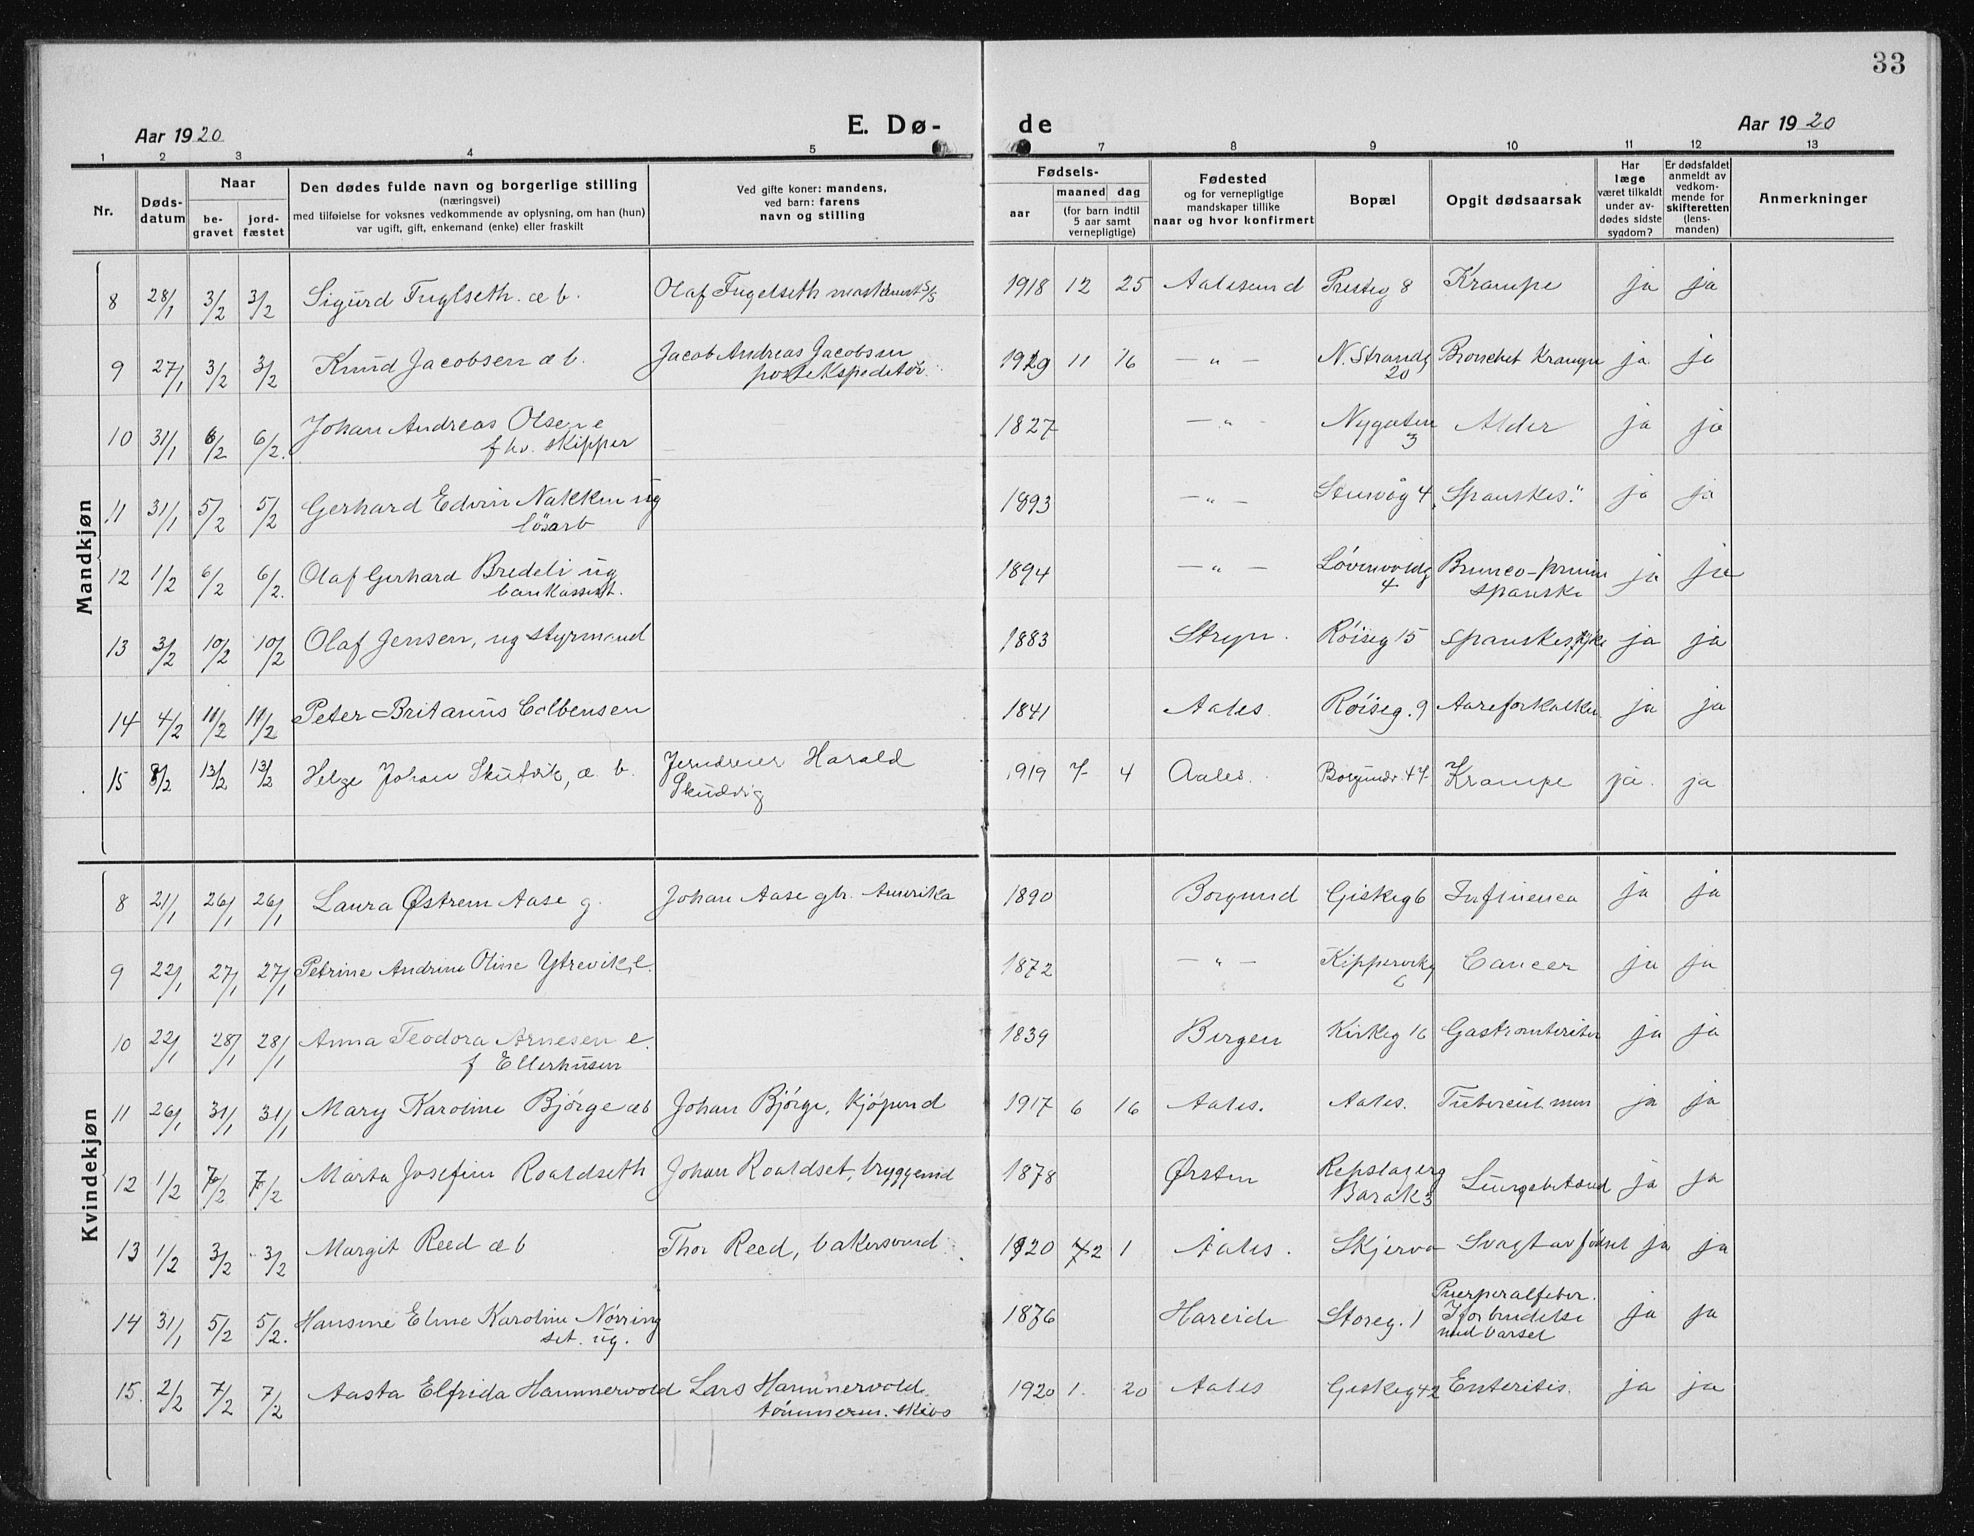 33
Aar 1920 E. Dø- de Aar 1920
1 2 3 4 5 7 8 9 10 11 12 13
Nr. Døds-datum Naar be-gravet jord-fæstet Den dødes fulde navn og borgerlige stilling (næringsvei) med tilføielse for voksnes vedkommende av oplysning, om han (hun) var ugift, gift, enkemand (enke) eller fraskilt Ved gifte koner: mandens, ved barn: farens navn og stilling Fødsels- aar maaned dag (for barn indtil 5 aar samt vernepligtige) Fødested og for vernepligtige mandskaper tillike naar og hvor konfirmert Bopæl Opgit dødsaarsak Har læge været tilkaldt under av-dødes sidste sygdom? Er dødsfaldet anmeldt av vedkom-mende for skifteretten (lens-manden) Anmerkninger
Mandkjøn
8 28/1 3/2 3/2 Sigurd Fuglseth æ b. Olaf Fugelseth maskinist S/S 1918 12 25 Aalesund Presteg 8 Krampe ja ja
9 27/1 3/2 3/2 Knud Jacobsen æ b. Jacob Andreas Jacobsen 1919 11 16 — " — N. Strandg Bronchit Krampe ja ja
postekspeditør. 20
10 31/1 6/2 6/2. Johan Andreas Olsen e 1827 — " — Nygaten Alder ja ja
fhv. skipper 3
11 31/1 5/2 5/2 Gerhard Edvin Nakken ug 1893 — " — Stenvåg 4 "Spanskes." ja ja
løsarb
12 1/2 6/2 6/2. Olaf Gerhard Bredeli ug 1894 — " — Løvenvoldg ja ja
bankassist. 4 spanske
13 3/2 10/2 10/2 Olaf Jensen, ug styrmand 1883 Stryn. Røiseg 15 spanskesyke ja ja
14 4/2 11/2 11/2 Peter Britanus Colbensen 1841 Aales. Røiseg. 9 Aareforkalkn. ja ja
15 8/2 13/2 13/2 Helge Johan Skutvik, æ. b. Jerndreier Harald 1919 7 4 Aales. Borgundv. 47 Krampe ja. ja
Skudvig
Kvindekjøn
8 21/1 26/1 26/1 Laura Østrem Aase g. Johan Aase gbr. Amerika 1890 Borgund Giskeg 6 Influenca ja ja
9 22/1 27/1 27/1 Petrine Andrine Oline Ytrevik, e. 1872 — " — Kipperviкg Cancer ja ja
6
10 22/1 28/1 28/1 Anna Teodora Arnesen e. 1839 Bergen Kirkeg 16 Gastroenteriter ja ja
f Ellerhusen
11 26/1 31/1 31/1 Mary Karoline Bjørge æb Johan Bjørge, kjøpmd 1917 6 16 Aales. Aales. Tubercul. men ja ja
12 1/2 7/2 7/2 Marta Josefine Roaldseth Johan Roaldset, bryggemd 1878 Ørsten Repslagerg Lungebetænd ja ja
Barak 3
13 1/2 3/2 3/2 Margit Reed æ b Thor Reed, bakersvend 1920 2 1 Aales. Skjerva Svagt av fødsel ja ja
14 31/1 5/2 5/2. Hansine Eline Karoline Nørring 1876 Hareide Storeg. 1 Puerperalfeber. ja ja
set. ug. I forbindelse
med barsel
15. 2/2 7/2 7/2 Aasta Elfrida Hammervold Lars Hammervold. 1920 1. 20 Aales Giskeg 42 Enteritis. ja ja
tømmerm. skibs